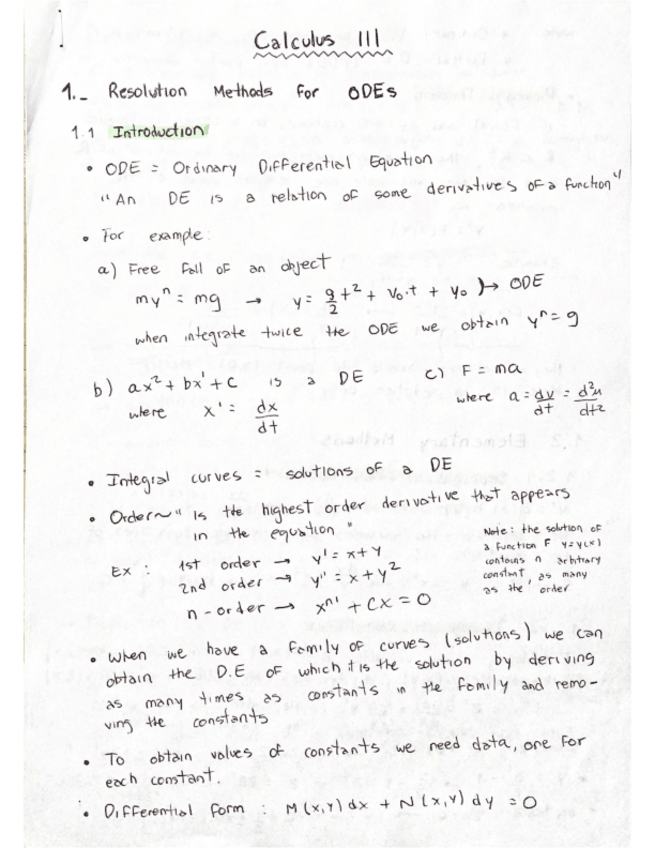 Calculus III
1._ Resolution Methods for ODEs
1.1 Introduction
• ODE = Ordinary Differential Equation
"An DE is a relation of some derivatives of a function"
• For example:
a) Free fall of an object
my" = mg → y = g/2 t² + V₀·t + y₀ } → ODE
when integrate twice the ODE we obtain y" = g
b) ax² + bx' + c is a DE c) F = ma
where x' = dx/dt where a = dv/dt = d²u/dt²
• Integral curves = solutions of a DE
• Order ~ "is the highest order derivative that appears
in the equation"
Note: the solution of
a function F y=y(x)
contains n arbitrary
constant, as many
as the order
Ex: 1st order → y' = x+y
2nd order → y" = x+y²
n-order → xⁿ' + Cx = 0
• When we have a family of curves (solutions) we can
obtain the D.E of which it is the solution by deriving
as many times as constants in the family and remo-
ving the constants
• To obtain values of constants we need data, one for
each constant.
• Differential form : M(x,y)dx + N(x,y)dy = 0